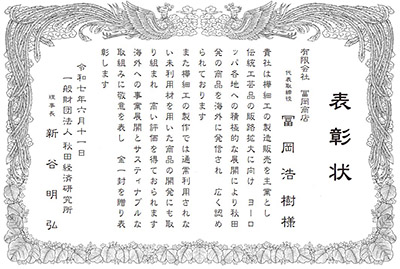 表彰状
有限会社 冨岡商店
代表取締役 冨岡浩樹様
貴社は樺細工の製造販売を主業とし
伝統工芸品の販路拡大に向け ヨーロ
ッパ各地への積極的な展開により秋田
発の商品を海外に発信され 広く認め
られております
また樺細工の製作では通常利用されな
い未利用材を用いた商品の開発にも取
り組まれ 高い評価を得ておられます
海外への事業展開とサスティナブルな
取組みに敬意を表し 金一封を贈り表
彰します
令和七年六月十一日
一般財団法人 秋田経済研究所
理事長 新谷明弘